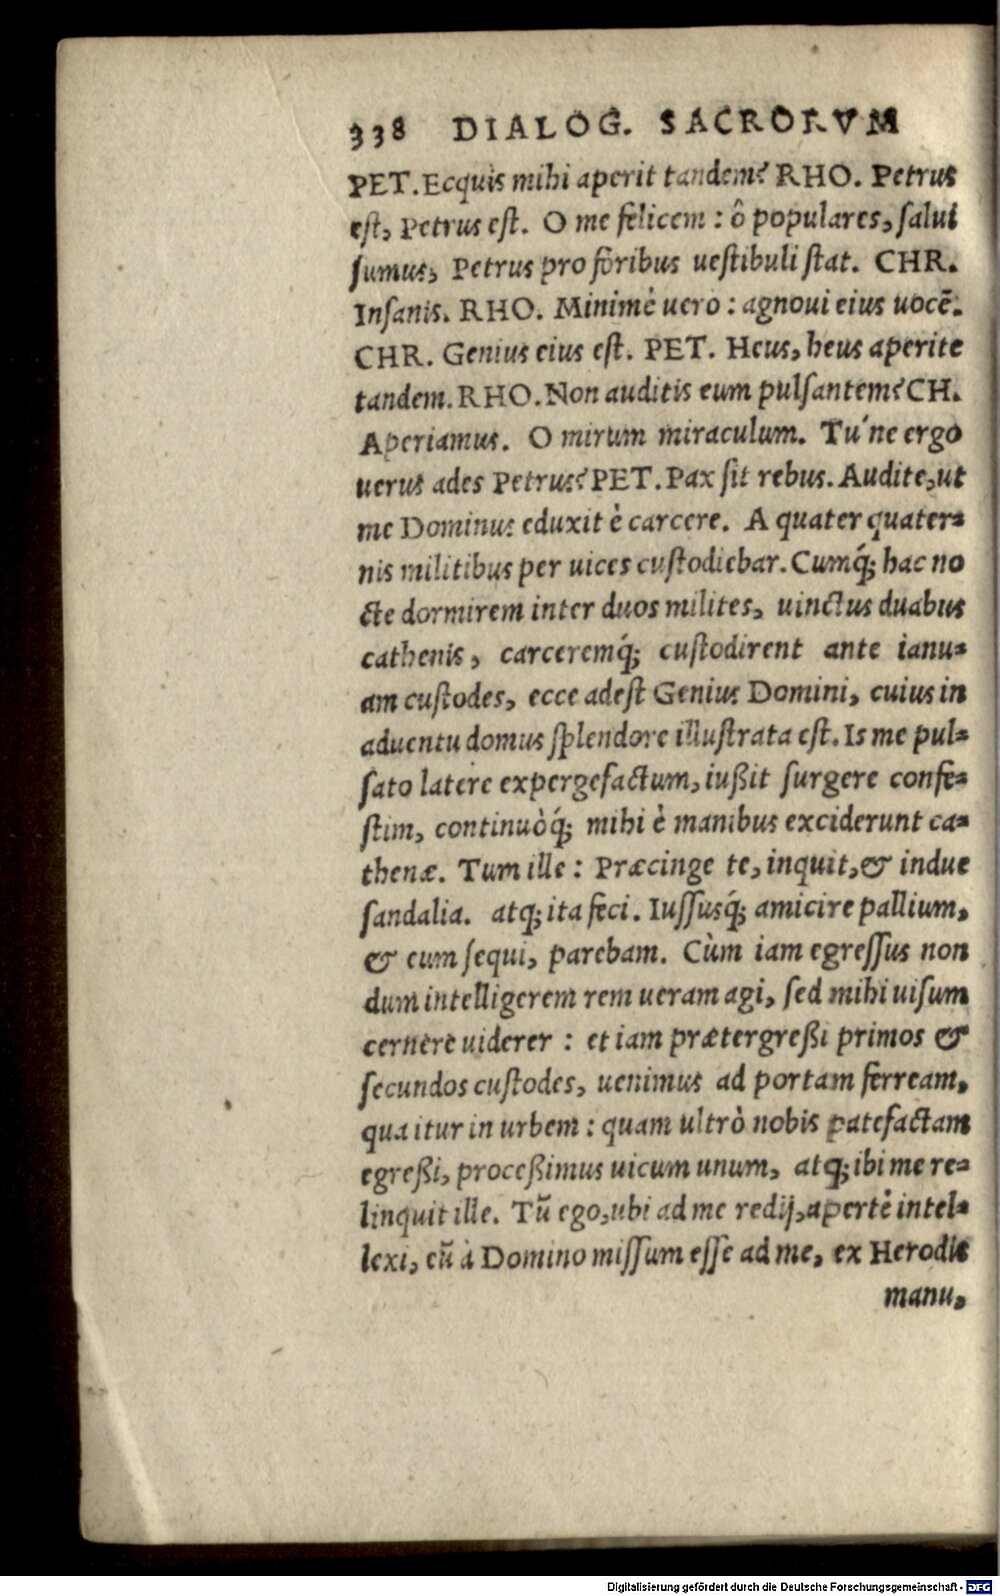 338 DIALOG. SACRORVM
PET. Ecquis mihi aperit tandem? RHO. Petrus
est, Petrus est. O me felicem: ô populares, salui
sumus, Petrus pro foribus uestibuli stat. CHR.
Insanis. RHO. Minimè uero: agnoui eius uocē.
CHR. Genius eius est. PET. Heus, heus aperite
tandem. RHO. Non auditis eum pulsantem? CH.
Aperiamus. O mirum miraculum. Tu'ne ergo
uerus ades Petrus? PET. Pax sit rebus. Audite, ut
me Dominus eduxit è carcere. A quater quater-
nis militibus per uices custodiebar. Cumq́; hac no
cte dormirem inter duos milites, uinctus duabus
cathenis, carceremq́; custodirent ante ianu-
am custodes, ecce adest Genius Domini, cuius in
aduentu domus splendore illustrata est. Is me pul-
sato latere expergefactum, iußit surgere confe-
stim, continuòq́; mihi è manibus exciderunt ca-
thenæ. Tum ille: Præcinge te, inquit, & indue
sandalia. atq; ita feci. Iussusq́; amicire pallium,
& eum sequi, parebam. Cùm iam egressus non
dum intelligerem rem ueram agi, sed mihi uisum
cernere uiderer: et iam prætergreßi primos &
secundos custodes, uenimus ad portam ferream,
qua itur in urbem: quam ultrò nobis patefactam
egreßi, proceßimus uicum unum, atq; ibi me re-
linquit ille. Tū ego, ubi ad me redij, apertè intel-
lexi, eū à Domino missum esse ad me, ex Herodis
manu,
Digitalisierung gefördert durch die Deutsche Forschungsgemeinschaft - DFG